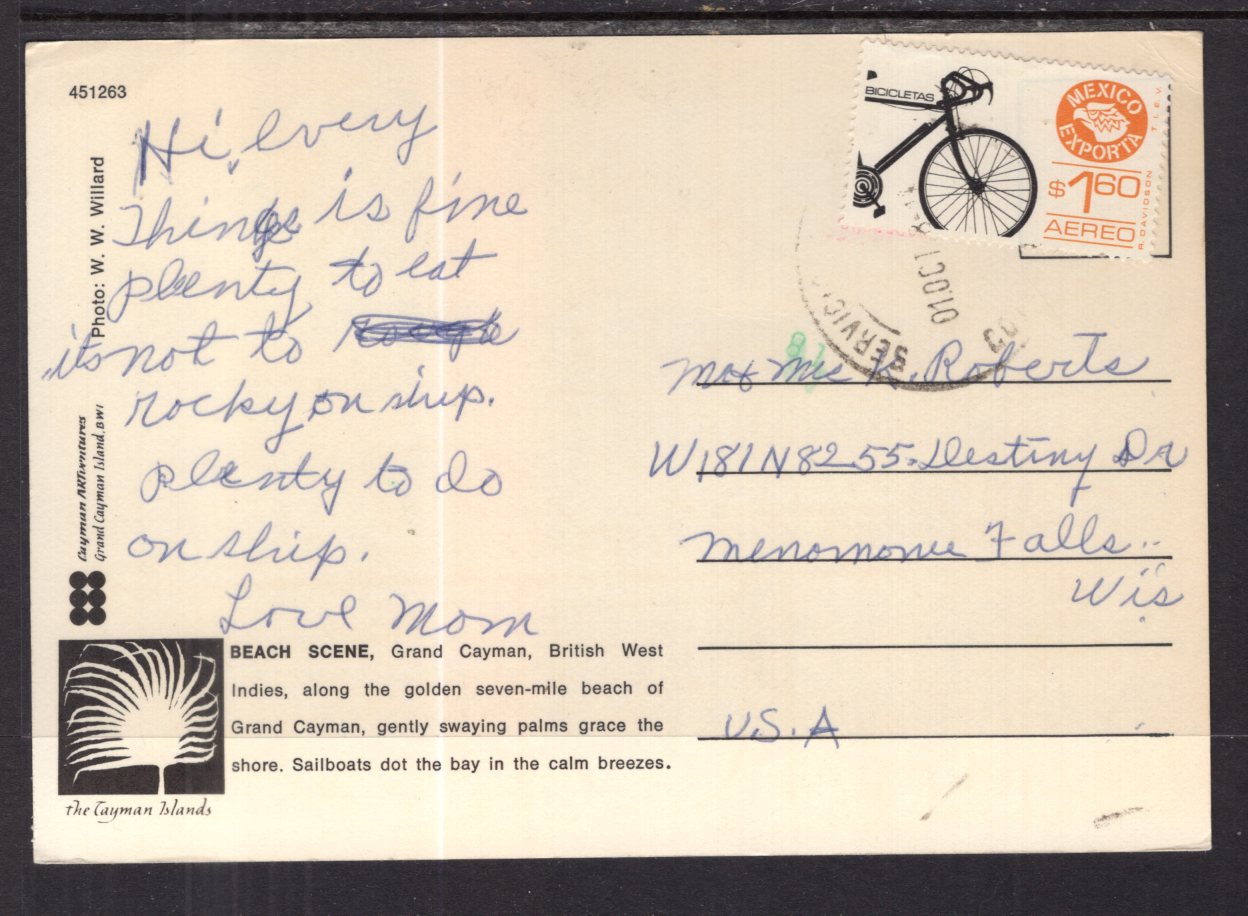 451263
Hi, every
Things is fine
plenty to eat
its not to
rocky on ship.
plenty to do
on ship.
Love Mom
Photo: W. W. Willard
Cayman ARTventures
Grand Cayman Island, BWI
BEACH SCENE, Grand Cayman, British West
Indies, along the golden seven-mile beach of
Grand Cayman, gently swaying palms grace the
shore. Sailboats dot the bay in the calm breezes.
the Cayman Islands
BICICLETAS
MEXICO
EXPORTA
$1.60
AEREO
T.I.E.V.
R. DAVIDSON
01.OCT
SERVICI
K. Roberts
W181N8255. Destiny Dr
Menomonee Falls..
Wis
U.S.A